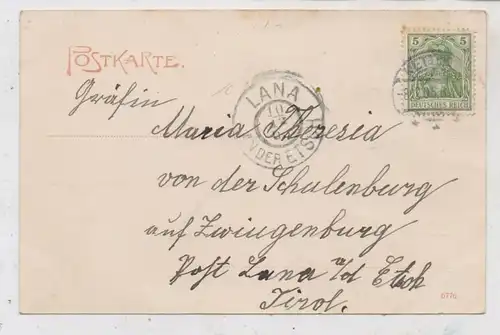 POSTKARTE.
5 5
DEUTSCHES REICH
LANA
AN DER ETSCH
Gräfin
Maria Theresia
von der Schulenburg
auf Zwingenburg
Post Lana a/d Etsch
Tirol.